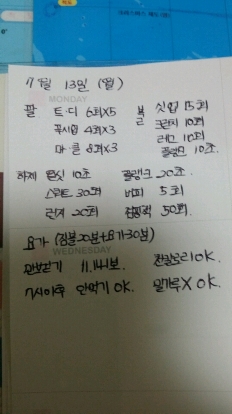 7월 13일 (월)
MONDAY
팔 트·디 6회X5
푹시업 4회X3
마·클 8회X3
복근 싯업 15회
크런치 10회
레그 10회
플랭크 10초
하체 런지 20회
스쿼트 30회
플랭크 20초
버피 5회
점핑잭 50회
요가 (짐볼20분+요가30분)
WEDNESDAY
만보걷기 11,141보
7시이후 안먹기 OK.
전칼로리OK
밀가루X OK